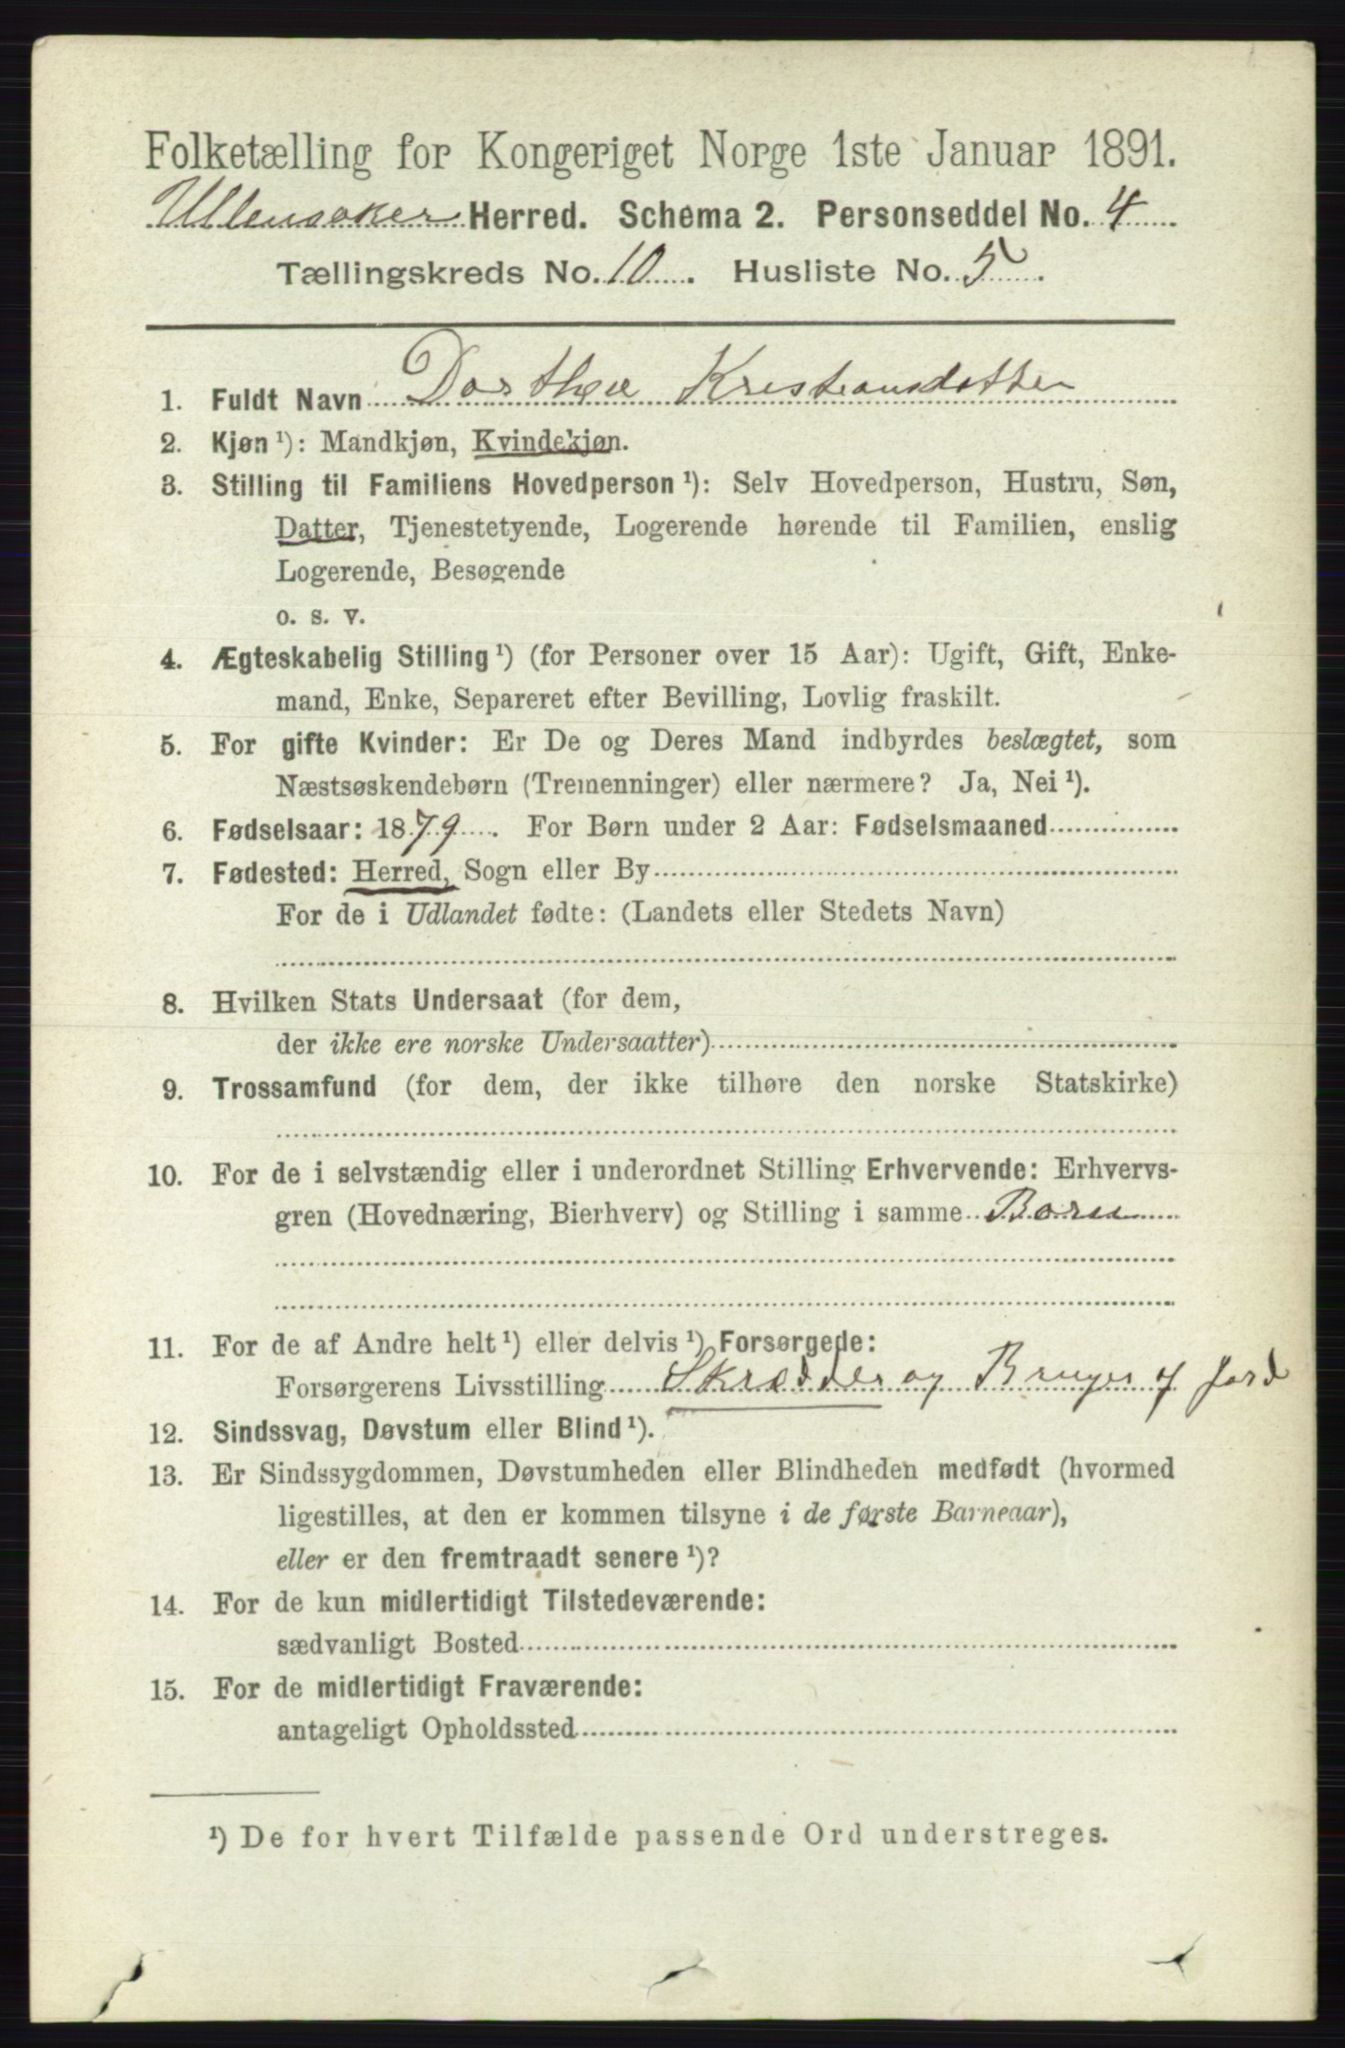 Folketælling for Kongeriget Norge 1ste Januar 1891.
Ullensaker Herred. Schema 2. Personseddel No. 4
Tællingskreds No. 10. Husliste No. 5.
1. Fuldt Navn Dorthea Kristiansdatter
2. Kjøn ¹): Mandkjøn, Kvindekjøn.
3. Stilling til Familiens Hovedperson ¹): Selv Hovedperson, Hustru, Søn,
Datter, Tjenestetyende, Logerende hørende til Familien, enslig
Logerende, Besøgende
o. s. v.
4. Ægteskabelig Stilling ¹) (for Personer over 15 Aar): Ugift, Gift, Enke-
mand, Enke, Separeret efter Bevilling, Lovlig fraskilt.
5. For gifte Kvinder: Er De og Deres Mand indbyrdes beslægtet, som
Næstsøskendebørn (Tremenninger) eller nærmere? Ja, Nei ¹).
6. Fødselsaar: 1879. For Børn under 2 Aar: Fødselsmaaned
7. Fødested: Herred, Sogn eller By
For de i Udlandet fødte: (Landets eller Stedets Navn)
8. Hvilken Stats Undersaat (for dem,
der ikke ere norske Undersaatter)
9. Trossamfund (for dem, der ikke tilhøre den norske Statskirke)
10. For de i selvstændig eller i underordnet Stilling Erhvervende: Erhvervs-
gren (Hovednæring, Bierhverv) og Stilling i samme Barn
11. For de af Andre helt ¹) eller delvis ¹) Forsørgede:
Forsørgerens Livsstilling Skrædder og Bruger af Jord
12. Sindssvag, Døvstum eller Blind ¹).
13. Er Sindssygdommen, Døvstumheden eller Blindheden medfødt (hvormed
ligestilles, at den er kommen tilsyne i de første Barneaar),
eller er den fremtraadt senere ¹)?
14. For de kun midlertidigt Tilstedeværende:
sædvanligt Bosted
15. For de midlertidigt Fraværende:
antageligt Opholdssted
¹) De for hvert Tilfælde passende Ord understreges.